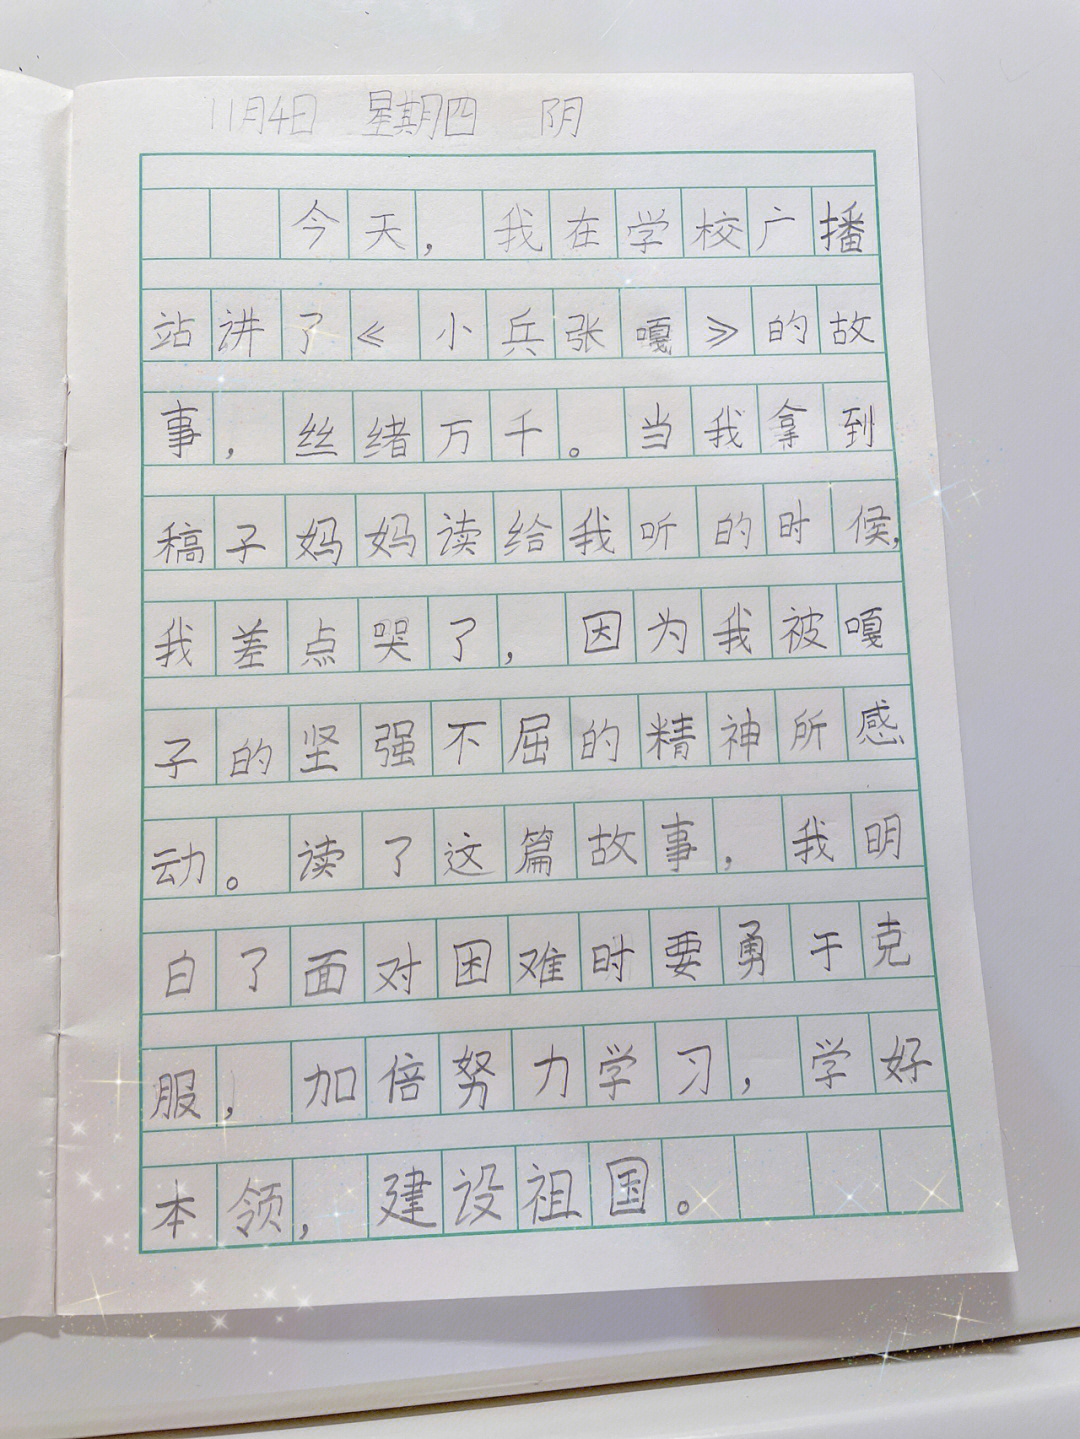 11月4日 星期四 阴
今天,我在学校广播
站讲了《小兵张嘎》的故
事,丝绪万千。当我拿到
稿子妈妈读给我听的时候,
我差点哭了,因为我被嘎
子的坚强不屈的精神所感
动。读了这篇故事,我明
白了面对困难时要勇于克
服,加倍努力学习,学好
本领,建设祖国。